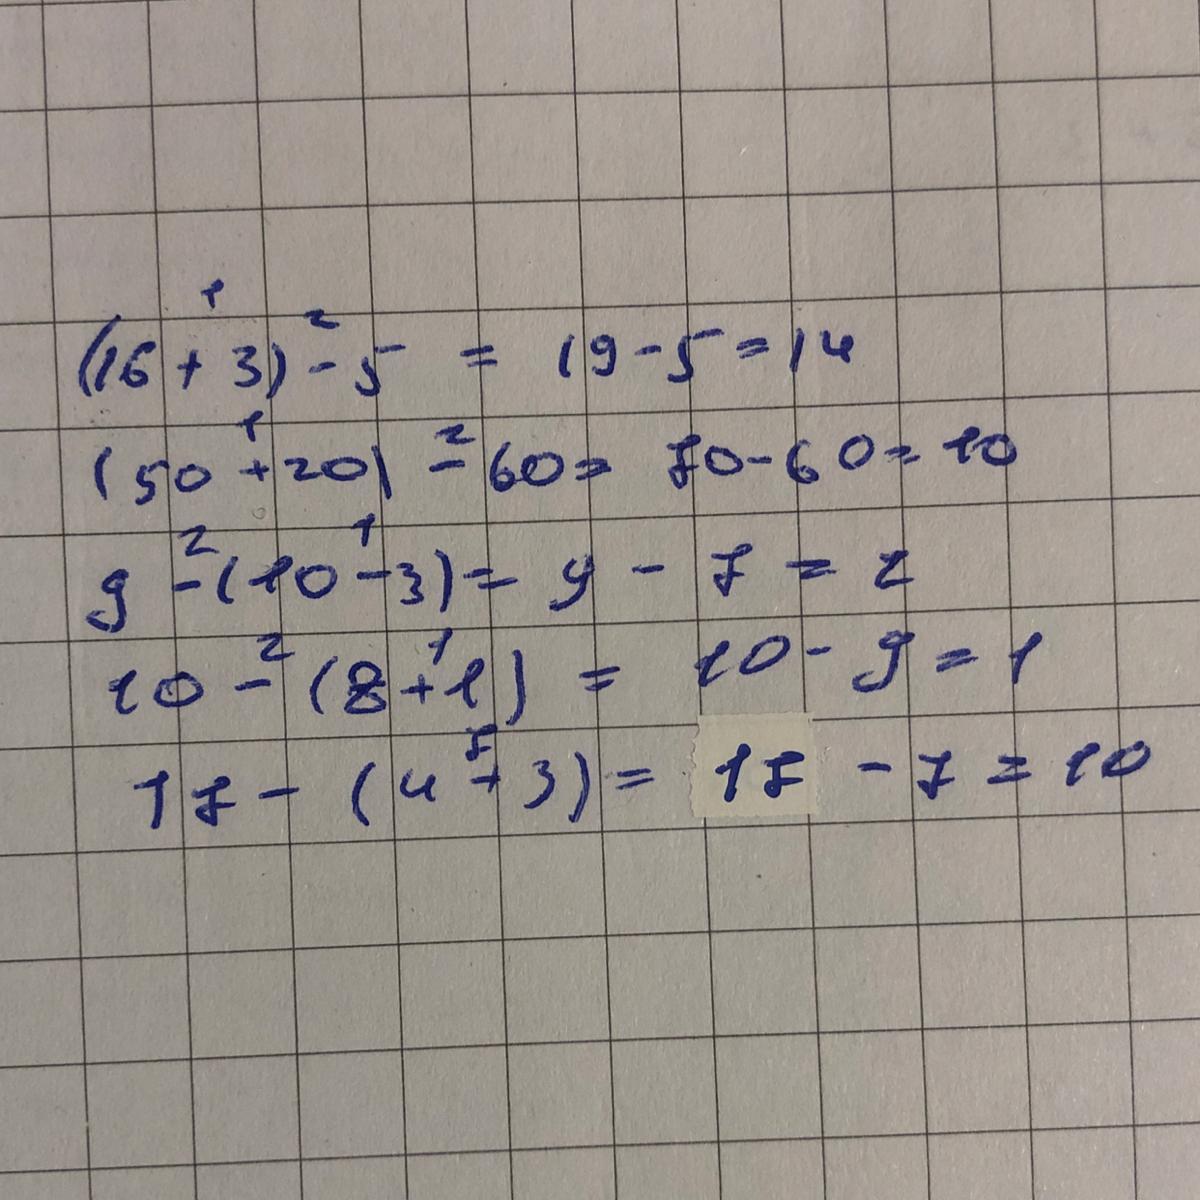 (16 + 3) - 5 = 19 - 5 = 14
(50 + 20) - 60 = 70 - 60 = 10
9 - (10 - 3) = 9 - 7 = 2
10 - (8 + 1) = 10 - 9 = 1
17 - (4 + 3) = 17 - 7 = 10